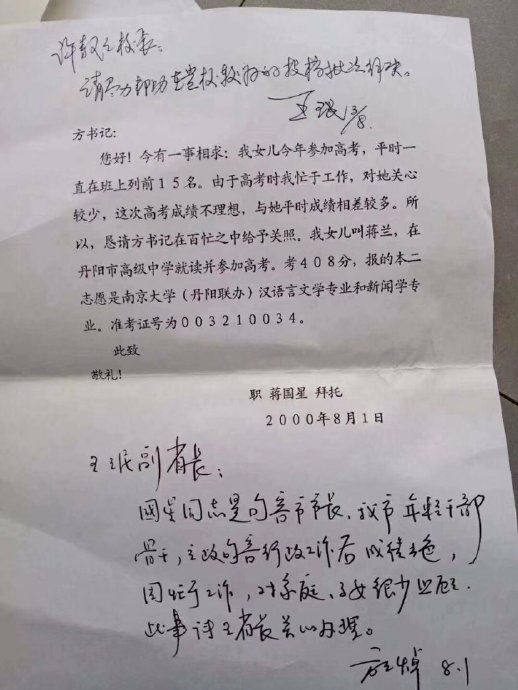 许敖敖校长:
请尽力帮助在贵校较好的投档批次解决。
王珉 3/8.
方书记:
您好！今有一事相求：我女儿今年参加高考，平时一
直在班上列前15名。由于高考时我忙于工作，对她关心
较少，这次高考成绩不理想，与她平时成绩相差较多。所
以，恳请方书记在百忙之中给予关照。我女儿叫蒋兰，在
丹阳市高级中学就读并参加高考。考408分，报的本二
志愿是南京大学（丹阳联办）汉语言文学专业和新闻学专
业。准考证号为003210034。
此致
敬礼！
职 蒋国星 拜托
2000年8月1日
王珉副省长:
国星同志是句容市市长，我市年轻干部
骨干，主政句容行政工作后成绩出色，
因忙于工作，对家庭、子女很少照顾.
此事请王省长关心办理。
8.1